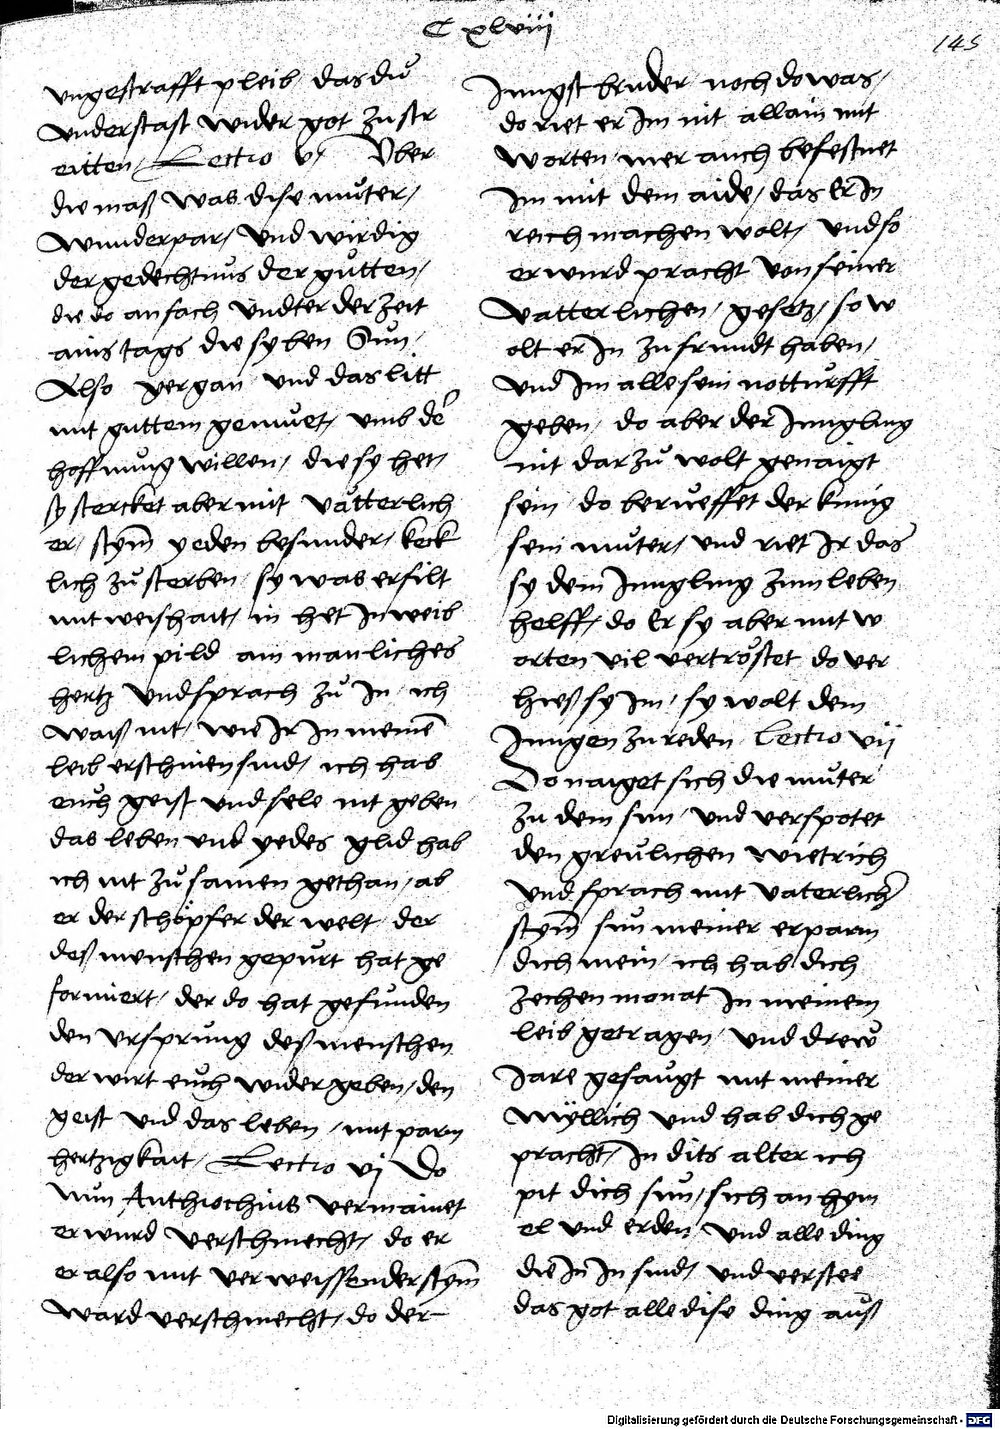 C xlviii
145
ungestrafft pleib / das dů
understast wider got zu str
eitten / Lectio v / Über
die maß was dise můter /
wunderpar / und wirdig
der gedechtnus der gůtten /
die do anfach ůndter der zeit
ains tags die syben Sun /
Also zergan und das litt
mit guttem gemuet / umb de
hoffnung willen / die sy het /
sy sterckt aber mit vätterlich
er / stym yeden besunder / keck
lich zů sterben / sy was erfilt
mit weishait / in het In weib
lichem pild ain manliches
hertz und sprach zů In / ich
waiß nit / wie Ir In meinē
leib erschinen sind / ich hab
euch geist und sele nit geben /
das leben und yedes glid hab
ich nit zů samen gethan / ab
er der schöpfer der welt / der
deß menschen gepurt hat ge
formiert / der do hat gefunden
den ursprung deß menschen
der wirt euch wider geben / den
geist und das leben / mit parm
hertzigkait / Lectio vj Do
Nun Anthiochius vermainet
er wurd verschmecht / do er
er also mit verweissender stym
ward verschmecht / do der
Jungst bruder noch do was /
do riet er Im nit allain mit
worten / mer auch befestnet
Im mit dem aide / das Er In
reich machen wolt / und so
er wurd pracht von seiner
vatterlichen / gesetz / so w
olt er In zu frundt haben /
und Im alle sein notturfft
geben / do aber der Jungling
nit darzů wolt genaigt
sein / do berueffet der kunig
sein můter / und riet Ir das
sy dem Jungling zum leben
helff / do Er sy aber mit w
orten vil vertröstet do ver
hieß sy Im / sy wolt dem
Jungen zu reden / Lectio vij
Do naiget sich die můter
zu dem sun / und verspotet
den greulichen wietrich
und sprach mit vaterlicher
stym sun meiner erparm
dich mein / ich hab dich
zechen monat In meinem
leib getragen / und drew
Jare gesaugt mit meiner
myllich und hab dich ge
pracht / In dits alter ich
pit dich sun / sich an hym
el und erden / und alle ding
die In In sind / und verstee
das got alle dise ding auß
Digitalisierung gefördert durch die Deutsche Forschungsgemeinschaft - DFG